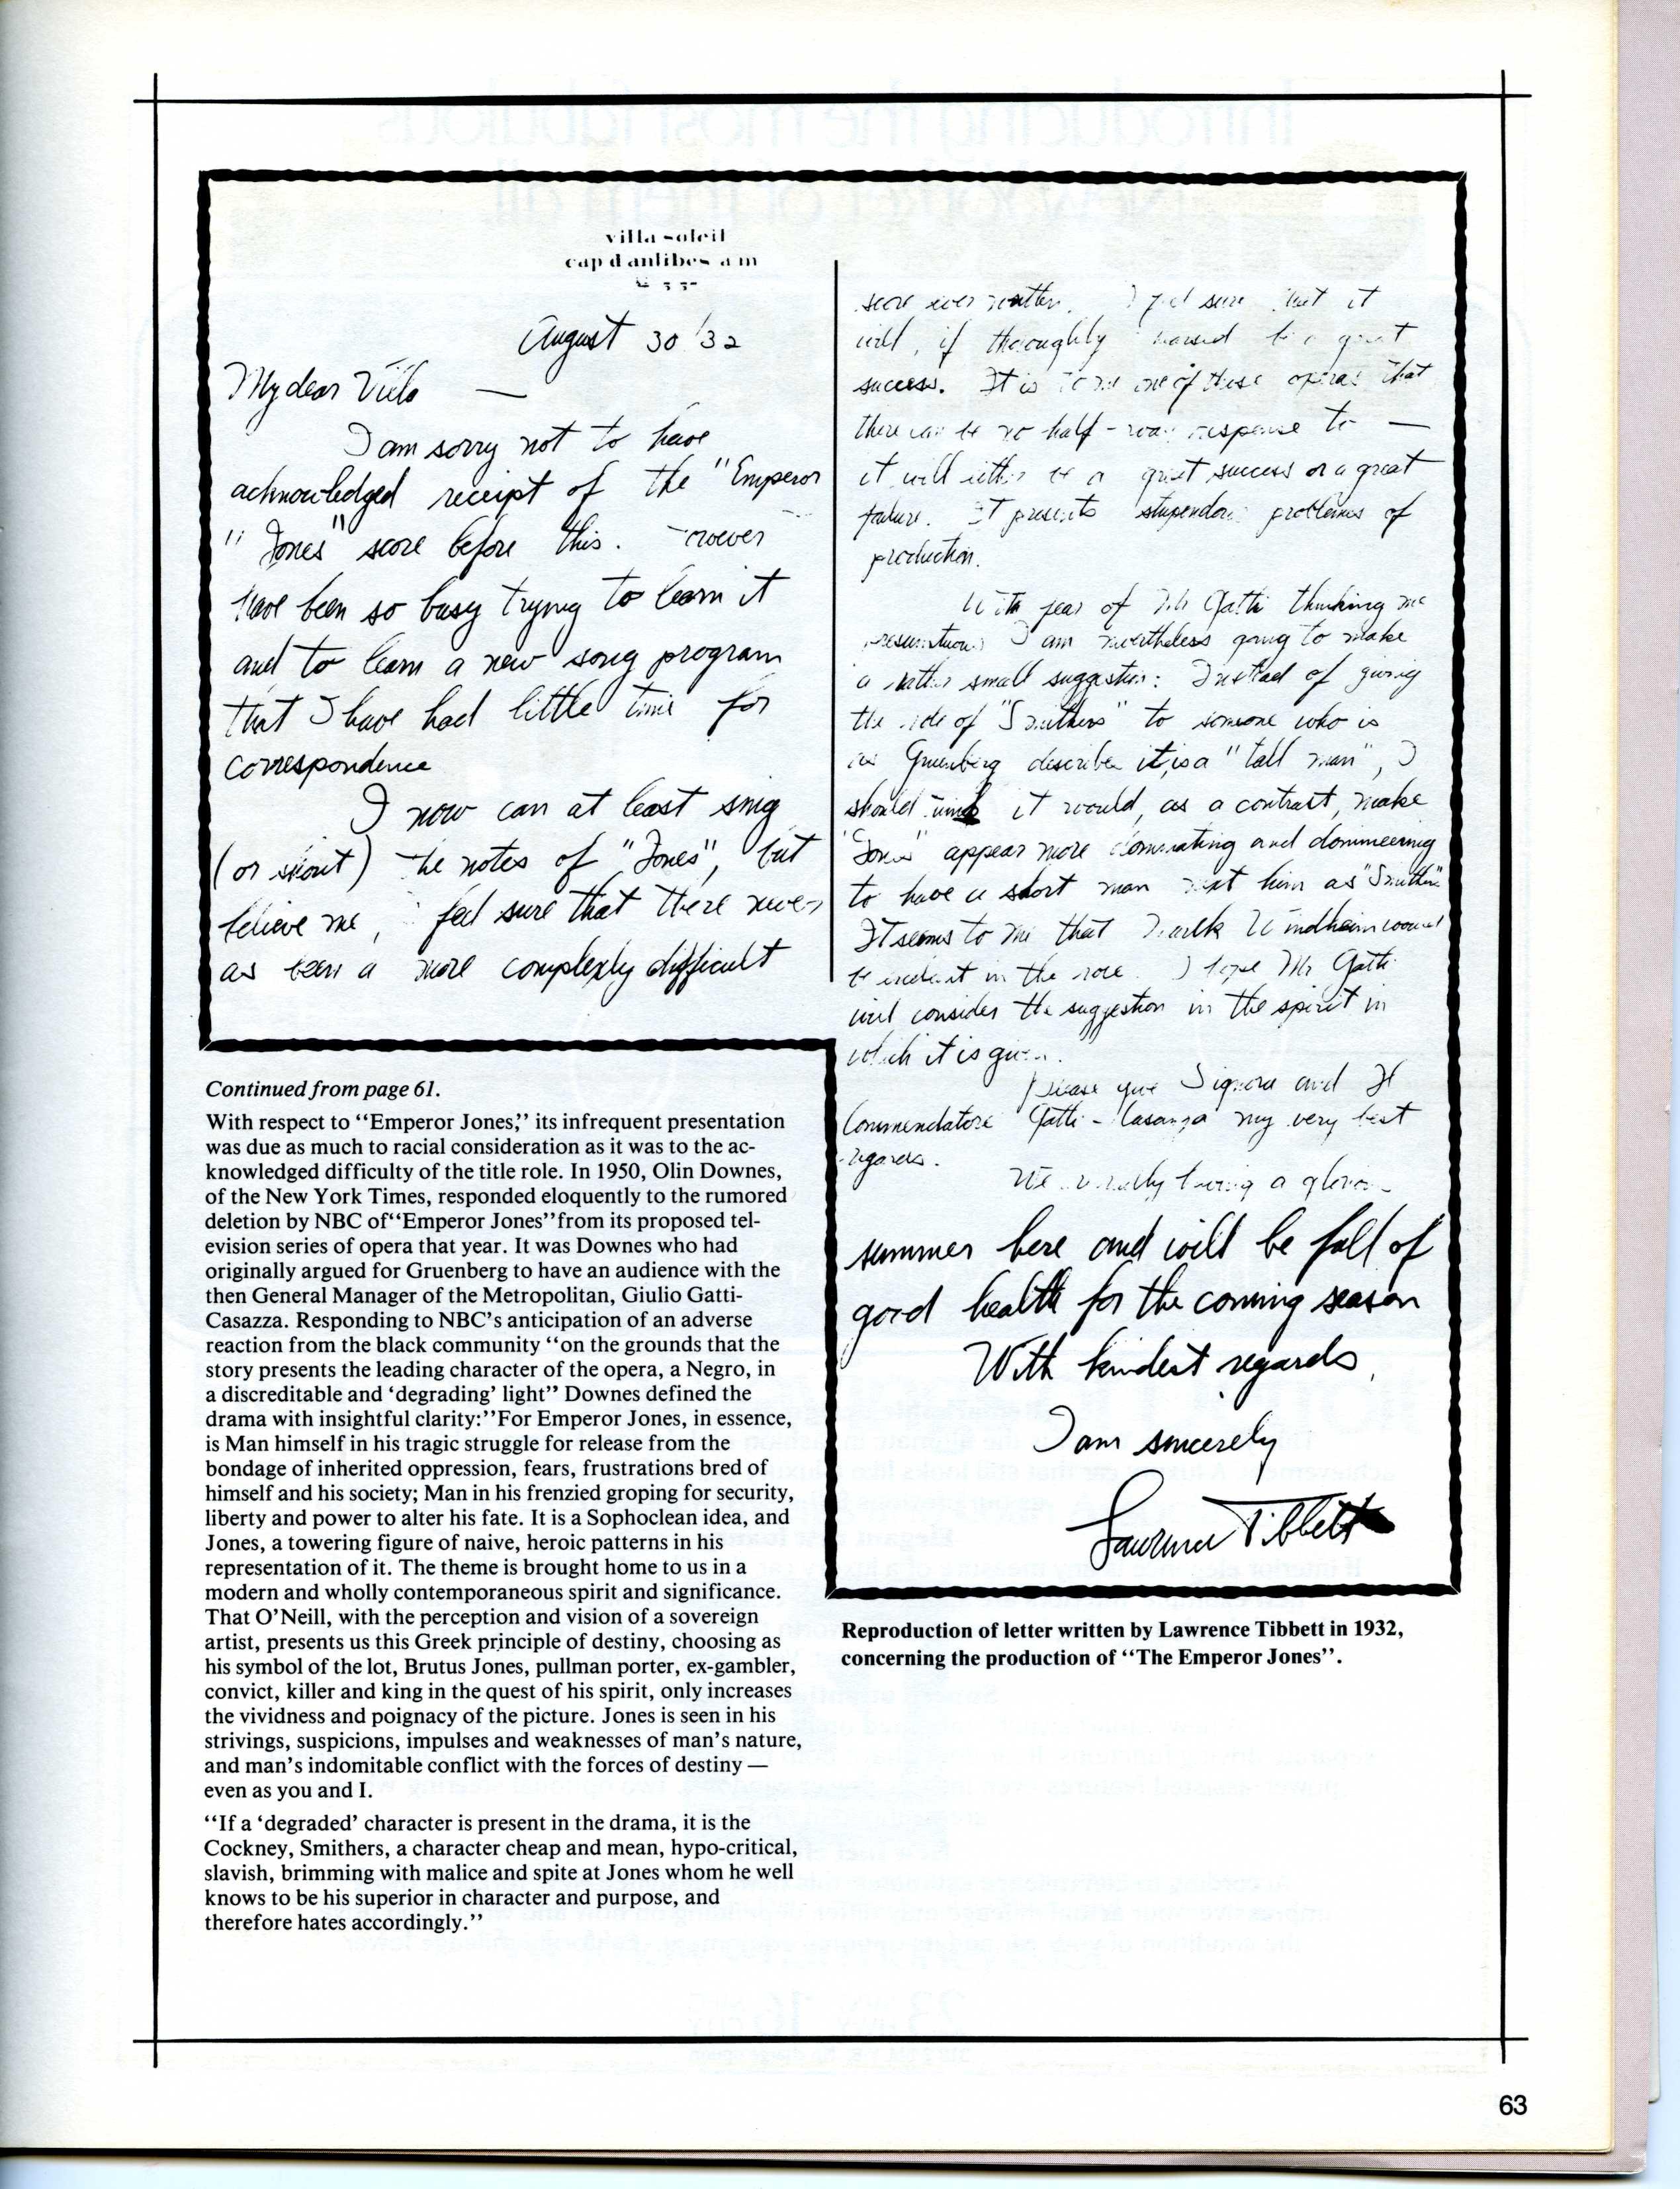 villa soleil
cap d antibes a m
August 30 '32
My dear Villa —
I am sorry not to have
acknowledged receipt of the "Emperor
"Jones" score before this.
have been so busy trying to learn it
and to learn a new song program
that I have had little time for
correspondence
I now can at least sing
(or shout) the notes of "Jones", but
believe me, feel sure that there never
as been a more complexly difficult
score ever written. I feel sure that it
will, if thoroughly be a great
success. It is to me one of those operas that
there can be no half-way response to —
it will either be a great success or a great
failure. It presents stupendous problems of
production.
With fear of Mr Gatti thinking me
I am nevertheless going to make
a rather small suggestion: Instead of giving
the role of "Smithers" to someone who is
as Gruenberg describes it, is a "tall man", I
should think it would, as a contrast, make
"Jones" appear more dominating and domineering
to have a short man next him as "Smithers"
It seems to me that Marek Windheim would
be excellent in the role. I hope Mr Gatti
will consider the suggestion in the spirit in
which it is given.
Please give Signora and Il
Commendatore Gatti-Casazza my very best
regards.
We having a glorious
summer here and will be full of
good health for the coming season
With kindest regards,
I am sincerely
Lawrence Tibbett
Continued from page 61.
With respect to "Emperor Jones," its infrequent presentation
was due as much to racial consideration as it was to the ac-
knowledged difficulty of the title role. In 1950, Olin Downes,
of the New York Times, responded eloquently to the rumored
deletion by NBC of "Emperor Jones" from its proposed tel-
evision series of opera that year. It was Downes who had
originally argued for Gruenberg to have an audience with the
then General Manager of the Metropolitan, Giulio Gatti-
Casazza. Responding to NBC's anticipation of an adverse
reaction from the black community "on the grounds that the
story presents the leading character of the opera, a Negro, in
a discreditable and 'degrading' light" Downes defined the
drama with insightful clarity:"For Emperor Jones, in essence,
is Man himself in his tragic struggle for release from the
bondage of inherited oppression, fears, frustrations bred of
himself and his society; Man in his frenzied groping for security,
liberty and power to alter his fate. It is a Sophoclean idea, and
Jones, a towering figure of naive, heroic patterns in his
representation of it. The theme is brought home to us in a
modern and wholly contemporaneous spirit and significance.
That O'Neill, with the perception and vision of a sovereign
artist, presents us this Greek principle of destiny, choosing as
his symbol of the lot, Brutus Jones, pullman porter, ex-gambler,
convict, killer and king in the quest of his spirit, only increases
the vividness and poignacy of the picture. Jones is seen in his
strivings, suspicions, impulses and weaknesses of man's nature,
and man's indomitable conflict with the forces of destiny —
even as you and I.
"If a 'degraded' character is present in the drama, it is the
Cockney, Smithers, a character cheap and mean, hypo-critical,
slavish, brimming with malice and spite at Jones whom he well
knows to be his superior in character and purpose, and
therefore hates accordingly."
Reproduction of letter written by Lawrence Tibbett in 1932,
concerning the production of "The Emperor Jones".
63